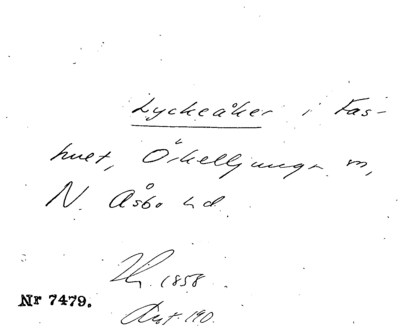 Lyckeåker i Fas-
huet, Örkelljunga m,
N. Åsbo hd.
1858
Nr 7479.
Avst. 190.